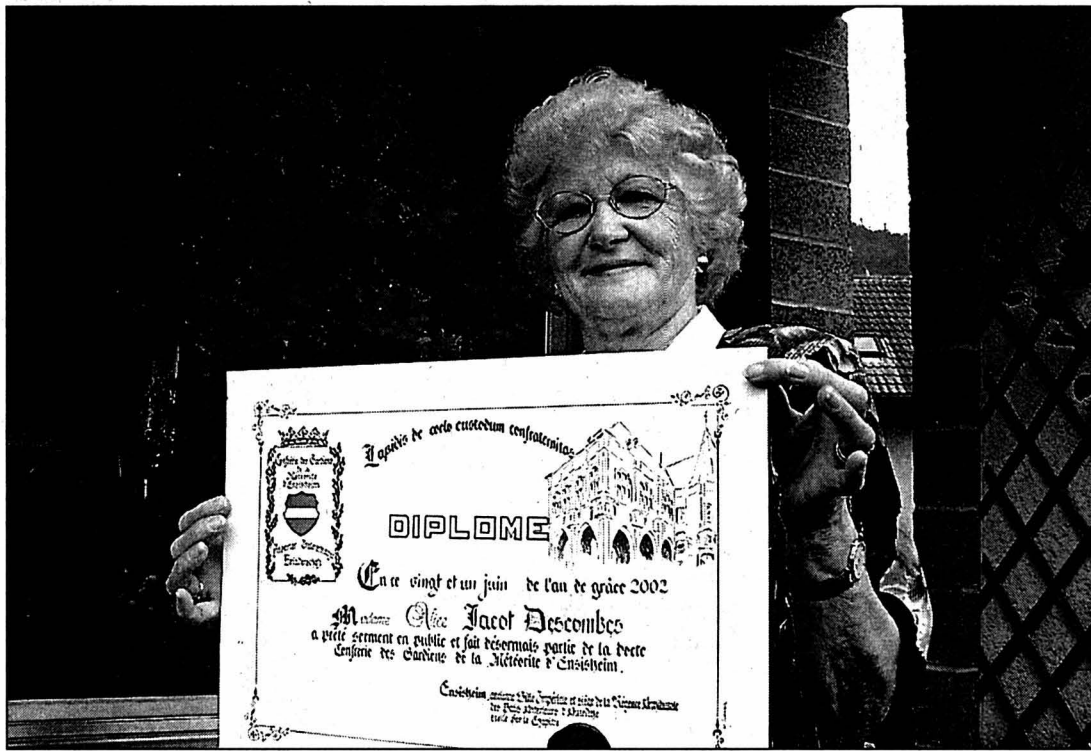 Lapidis de coelo custodum confraternitas
Confrérie des Gardiens
de la
Météorite
d'Ensisheim
DIPLOME
En ce vingt et un juin de l'an de grâce 2002
Madame Alice Jacot Descombes
a prêté serment en public et fait désormais partie de la docte
Confrérie des Gardiens de la Météorite d'Ensisheim.
Ensisheim, ancienne Ville Impériale et siège de la Régence
des